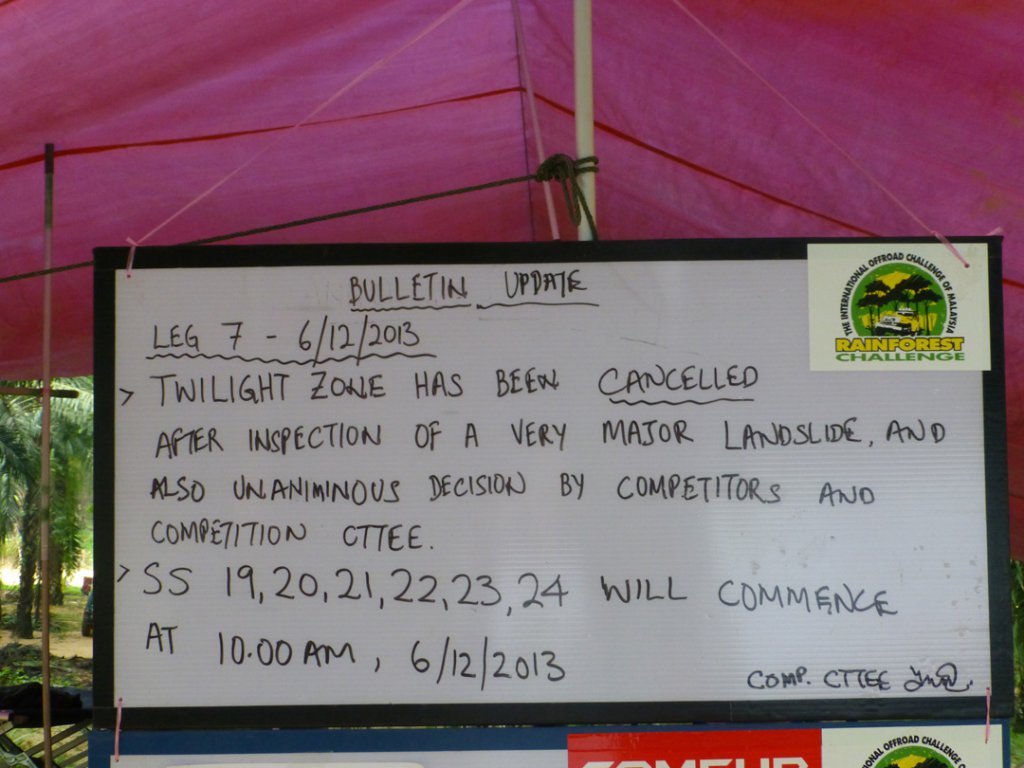 BULLETIN UPDATE
THE INTERNATIONAL OFFROAD CHALLENGE OF MALAYSIA
RAINFOREST
CHALLENGE
LEG 7 - 6/12/2013
> TWILIGHT ZONE HAS BEEN CANCELLED
AFTER INSPECTION OF A VERY MAJOR LANDSLIDE, AND
ALSO UNANIMINOUS DECISION BY COMPETITORS AND
COMPETITION CTTEE.
> SS 19, 20, 21, 22, 23, 24 WILL COMMENCE
AT 10.00 AM, 6/12/2013
COMP. CTTEE
THE INTERNATIONAL OFFROAD CHALLENGE